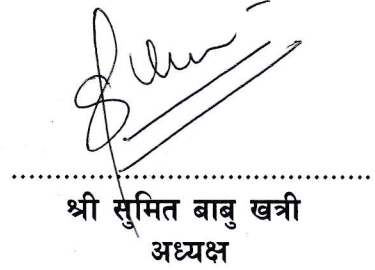 श्री सुमित बाबु खत्री
अध्यक्ष